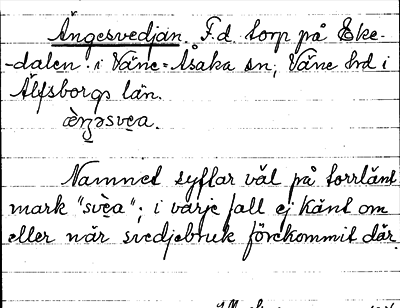 Ängesvedjan. F.d. torp på Eke-
-dalen i Väne-Åsaka sn, Väne hd i
Älfsborgs län.
æ̀ŋ̠əsve̬a.
Namnet syftar väl på torrländ
mark "svè̬a"; i varje fall ej känt om
eller när svedjebruk förekommit där.